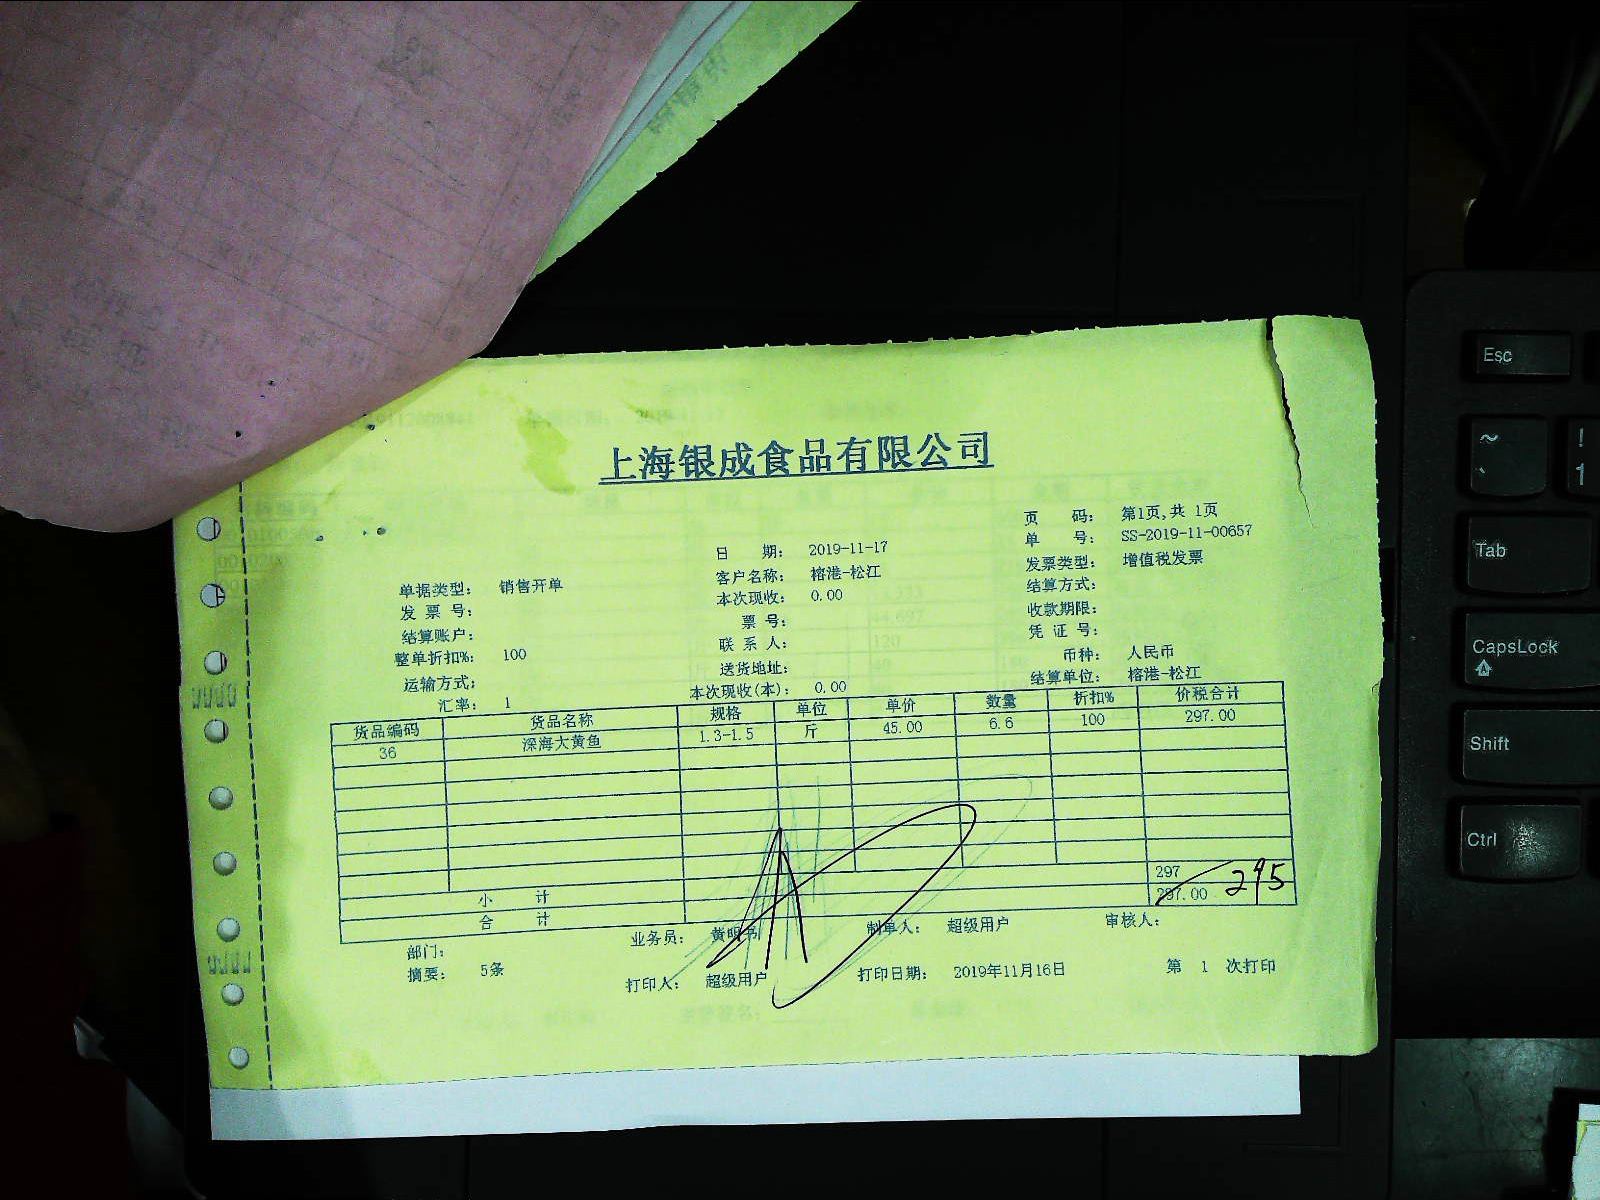 上海银成食品有限公司
页 码: 第1页,共 1页
日 期: 2019-11-17 单 号: SS-2019-11-00657
单据类型: 销售开单 客户名称: 榕港-松江 发票类型: 增值税发票
发 票 号: 本次现收: 0.00 结算方式:
结算账户: 票 号: 收款期限:
整单折扣%: 100 联 系 人: 凭 证 号:
运输方式: 送货地址: 币种: 人民币
汇率: 1 本次现收(本): 0.00 结算单位: 榕港-松江
货品编码 货品名称 规格 单位 单价 数量 折扣% 价税合计
36 深海大黄鱼 1.3-1.5 斤 45.00 6.6 100 297.00
小 计 297
合 计 297.00 295
部门: 业务员: 黄明书 制单人: 超级用户 审核人:
摘要: 5条 打印人: 超级用户 打印日期: 2019年11月16日 第 1 次打印
Esc
~ ! ` 1
Tab
CapsLock
Shift
Ctrl